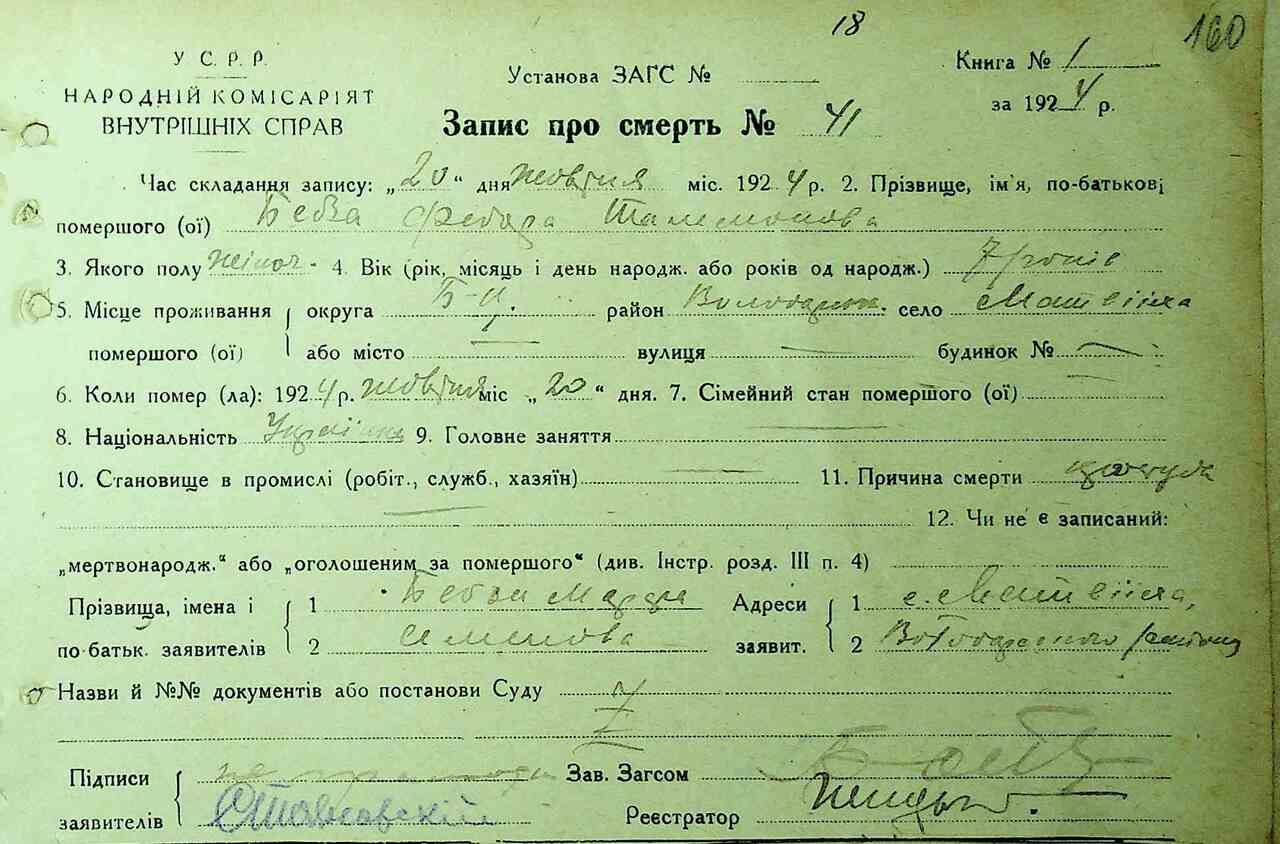 18
160
У С. Р. Р.
НАРОДНІЙ КОМІСАРІЯТ
ВНУТРІШНІХ СПРАВ
Установа ЗАГС №
Книга № 1
за 1924 р.
Запис про смерть № 41
Час складання запису: „20“ дня жовтня міс. 1924 р. 2. Прізвище, ім'я, по-батькові
помершого (ої)
3. Якого полу жіноч. 4. Вік (рік, місяць і день народж. або років од народж.) 7 років
5. Місце проживання округа Б-Ц. район Володарськ. село Матвіїха
помершого (ої) або місто — вулиця — будинок № —
6. Коли помер (ла): 1924 р. жовтня міс „20“ дня. 7. Сімейний стан помершого (ої) —
8. Національність 9. Головне заняття —
10. Становище в промислі (робіт., служб., хазяїн) — 11. Причина смерти
12. Чи не є записаний:
„мертвонародж.“ або „оголошеним за помершого“ (див. Інстр. розд. III п. 4)
Прізвища, імена і 1 Адреси 1 с. Матвіїха,
по батьк. заявителів 2 заявит. 2 Володарського району
Назви й №№ документів або постанови Суду
Підписи Зав. Загсом
заявителів Реєстратор